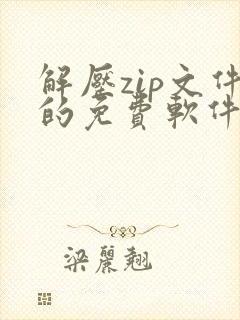 解壓zip文件
的免費軟件
梁麗翹